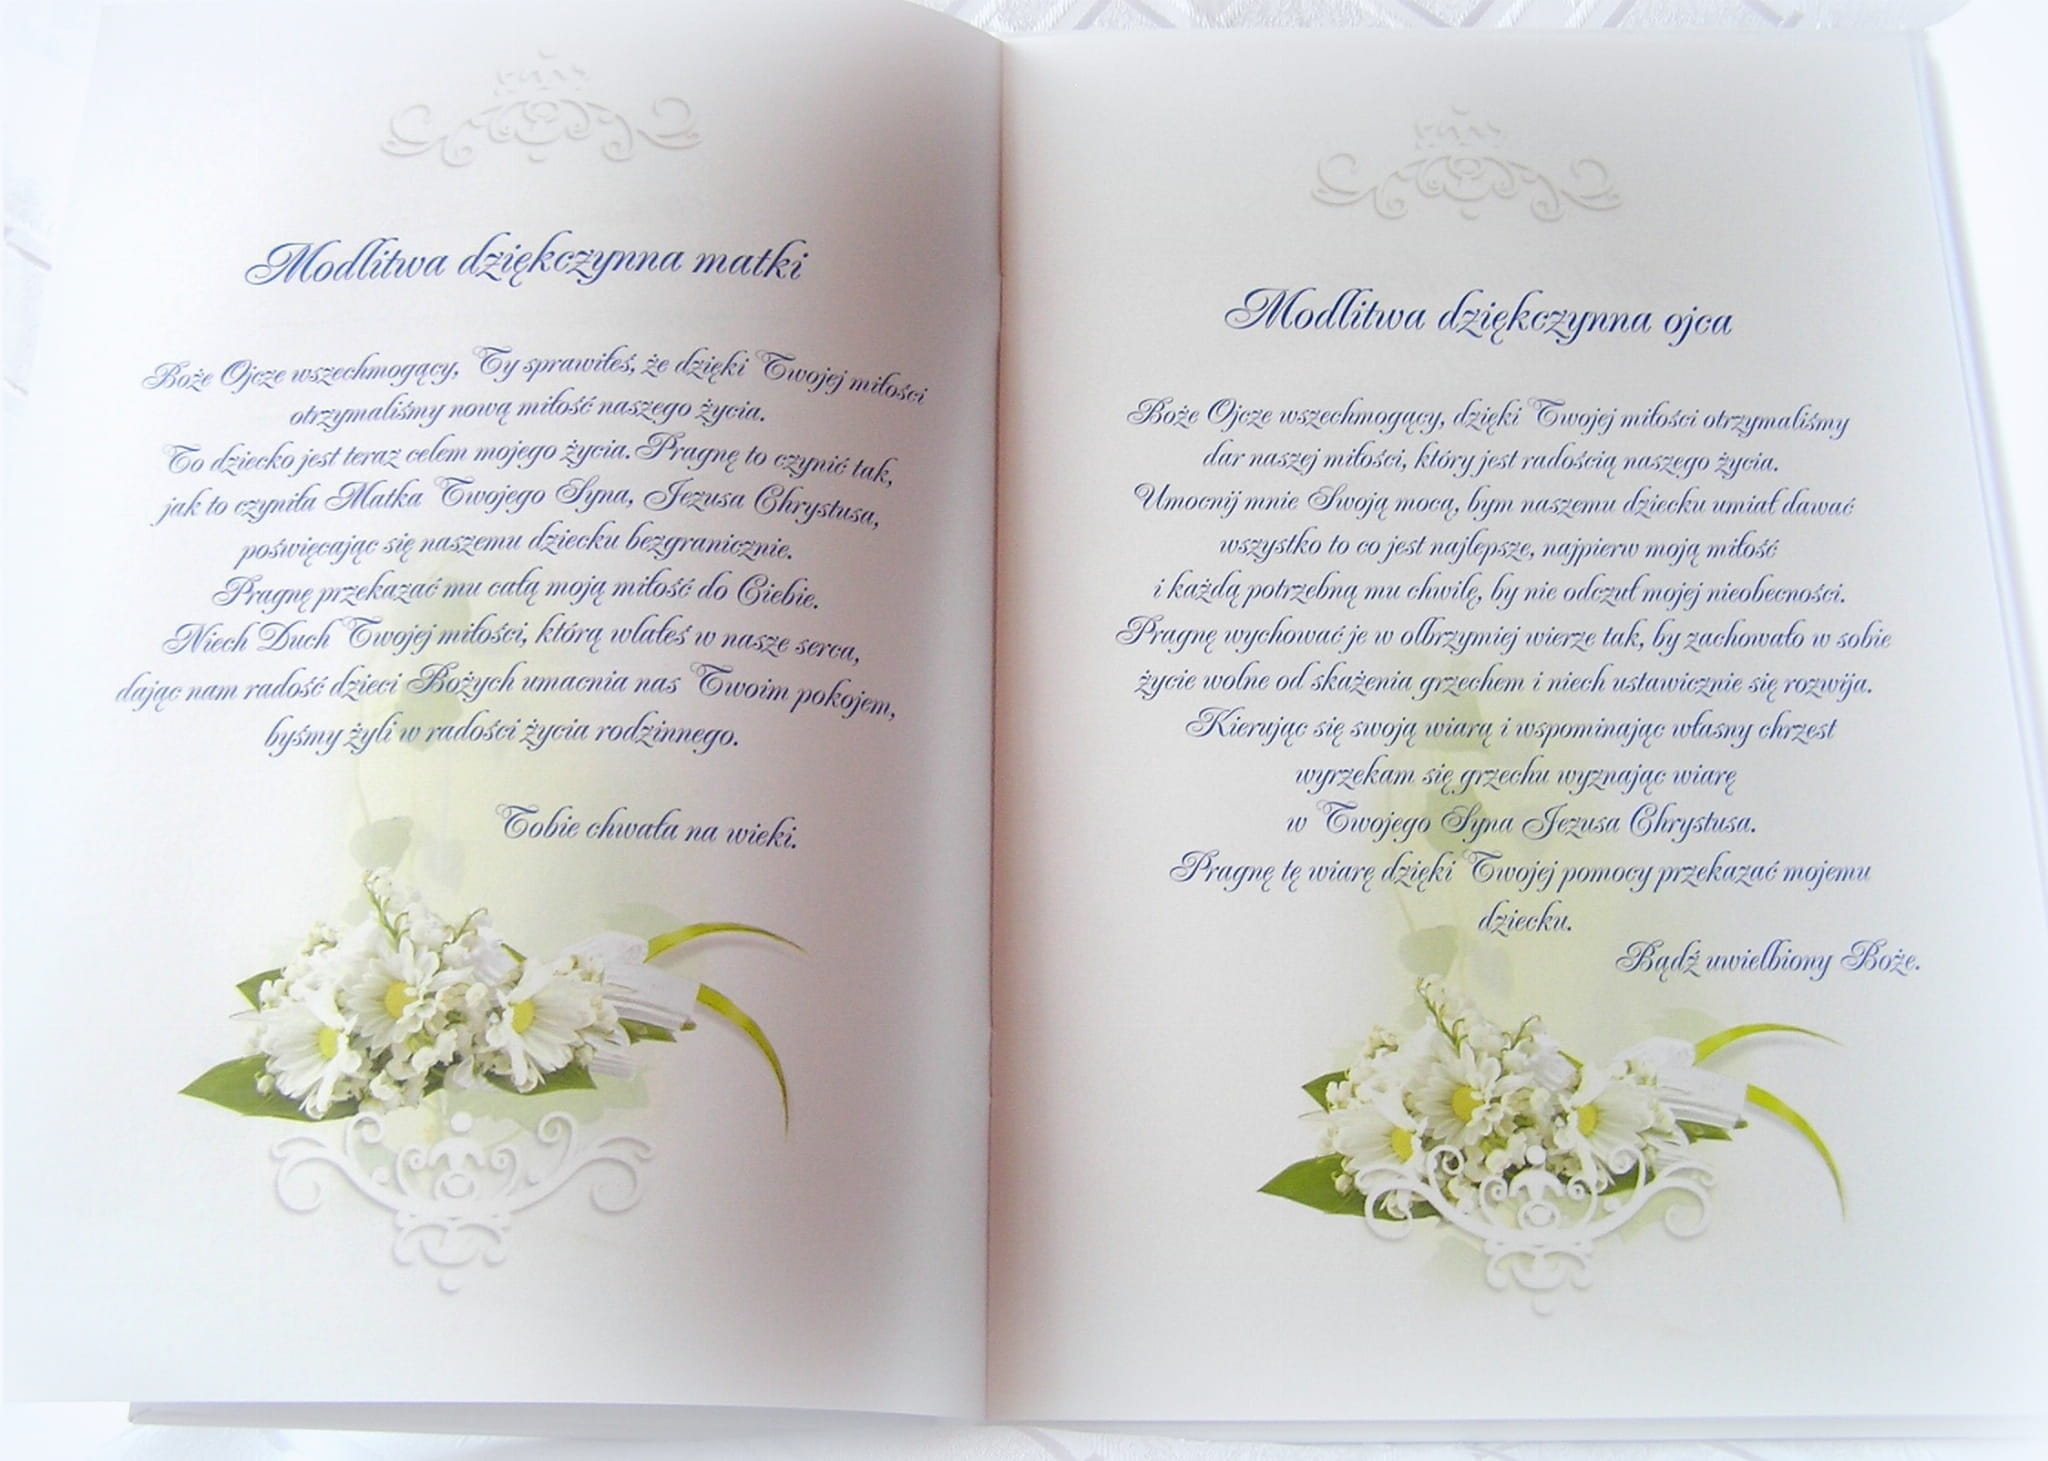 Modlitwa dziękczynna matki
Boże Ojcze wszechmogący, Ty sprawiłeś, że dzięki Twojej miłości
otrzymaliśmy nową miłość naszego życia.
To dziecko jest teraz celem mojego życia. Pragnę to czynić tak,
jak to czyniła Matka Twojego Syna, Jezusa Chrystusa,
poświęcając się naszemu dziecku bezgranicznie.
Pragnę przekazać mu całą moją miłość do Ciebie.
Niech Duch Twojej miłości, którą wlałeś w nasze serca,
dając nam radość dzieci Bożych umacnia nas Twoim pokojem,
byśmy żyli w radości życia rodzinnego.
Tobie chwała na wieki.
Modlitwa dziękczynna ojca
Boże Ojcze wszechmogący, dzięki Twojej miłości otrzymaliśmy
dar naszej miłości, który jest radością naszego życia.
Umocnij mnie Swoją mocą, bym naszemu dziecku umiał dawać
wszystko to co jest najlepsze, najpierw moją miłość
i każdą potrzebną mu chwilę, by nie odczuł mojej nieobecności.
Pragnę wychować je w olbrzymiej wierze tak, by zachowało w sobie
życie wolne od skażenia grzechem i niech ustawicznie się rozwija.
Kierując się swoją wiarą i wspominając własny chrzest
wyrzekam się grzechu wyznając wiarę
w Twojego Syna Jezusa Chrystusa.
Pragnę tę wiarę dzięki Twojej pomocy przekazać mojemu
dziecku.
Bądź uwielbiony Boże.